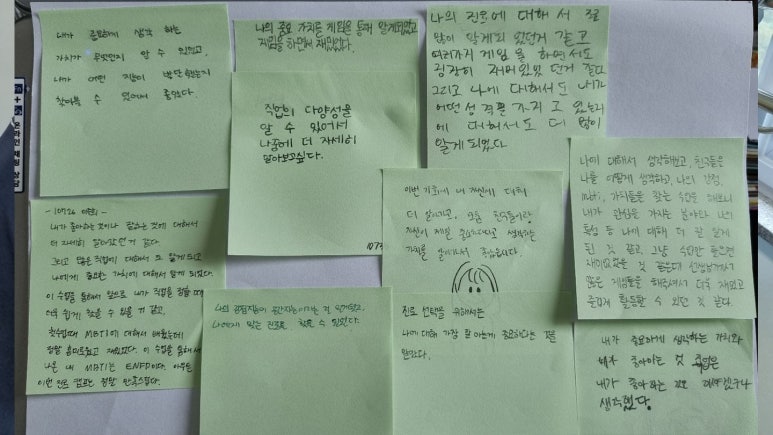 내가 중요하게 생각 하는
가치가 무엇인지 알 수 있었고
내가 어떤 직업이
찾아볼 수 있어서 좋았다.
나의 중요 가치를 게임을 통해 알게되었고
게임을 하면서 재밌었다.
나의 진로에 대해서 잘
많이 알게되 었던거 같고
여러가지 게임을 하면서도
굉장히 재미있었 던거 같다
그리고 나에 대해서도 내가
어떤 성격을 가지 고 있는지
에 대해서도 더 많이
알게 되었다
직업의 다양성을
알 수 있어서
나중에 더 자세히
알아보고싶다.
1073
이번 기회에 내 자신에 대해
더 알아가고, 오늘 친구들이랑
자신이 제일 중요하다고 생각하는
가치를 알게되어서 좋았습니다
나에 대해서 생각해보고, 친구들은
나를 어떻게 생각하고, 나의 강점,
mbti, 가치관을 찾는 수업을 해보니
내가 관심을 가지는 분야와 나의
특성 등 나에 대해 더 잘 알게
된 것 같고, 그냥 수업만 들으면
재미없었을 것 같은데 선생님께서
많은 게임들을 해주셔서 더욱 재밌고
즐겁게 활동할 수 있던 것 같다.
-10726
내가 좋아하는 것이나 잘하는 것에 대해서
더 자세히 알아갔던거 같다.
그리고 많은 직업에 대해서 또 알게 되고
나에게 중요한 가치에 대해서 알게 되었다.
이 수업을 통해서 앞으로 내가 직업을 정할 때
더욱 쉽게 찾을 수 있을 거 같고,
첫수업때 MBTI에 대해서 배웠는데
정말 흥미로웠고 재밌었다. 이 수업을 통해서
나온 내 MBTI는 ENFP이다. 아무튼
이번 진로 캠프는 정말 만족스럽다.
나의
나에게 맞는 진로를 찾을 수 있었다.
진로 선택을 위해서는
나에 대해 가장 잘 아는게 중요하다는 것을
알았다.
내가 중요하게 생각하는 가치와
좋아하는 것
내가 좋아하는
생각했다.